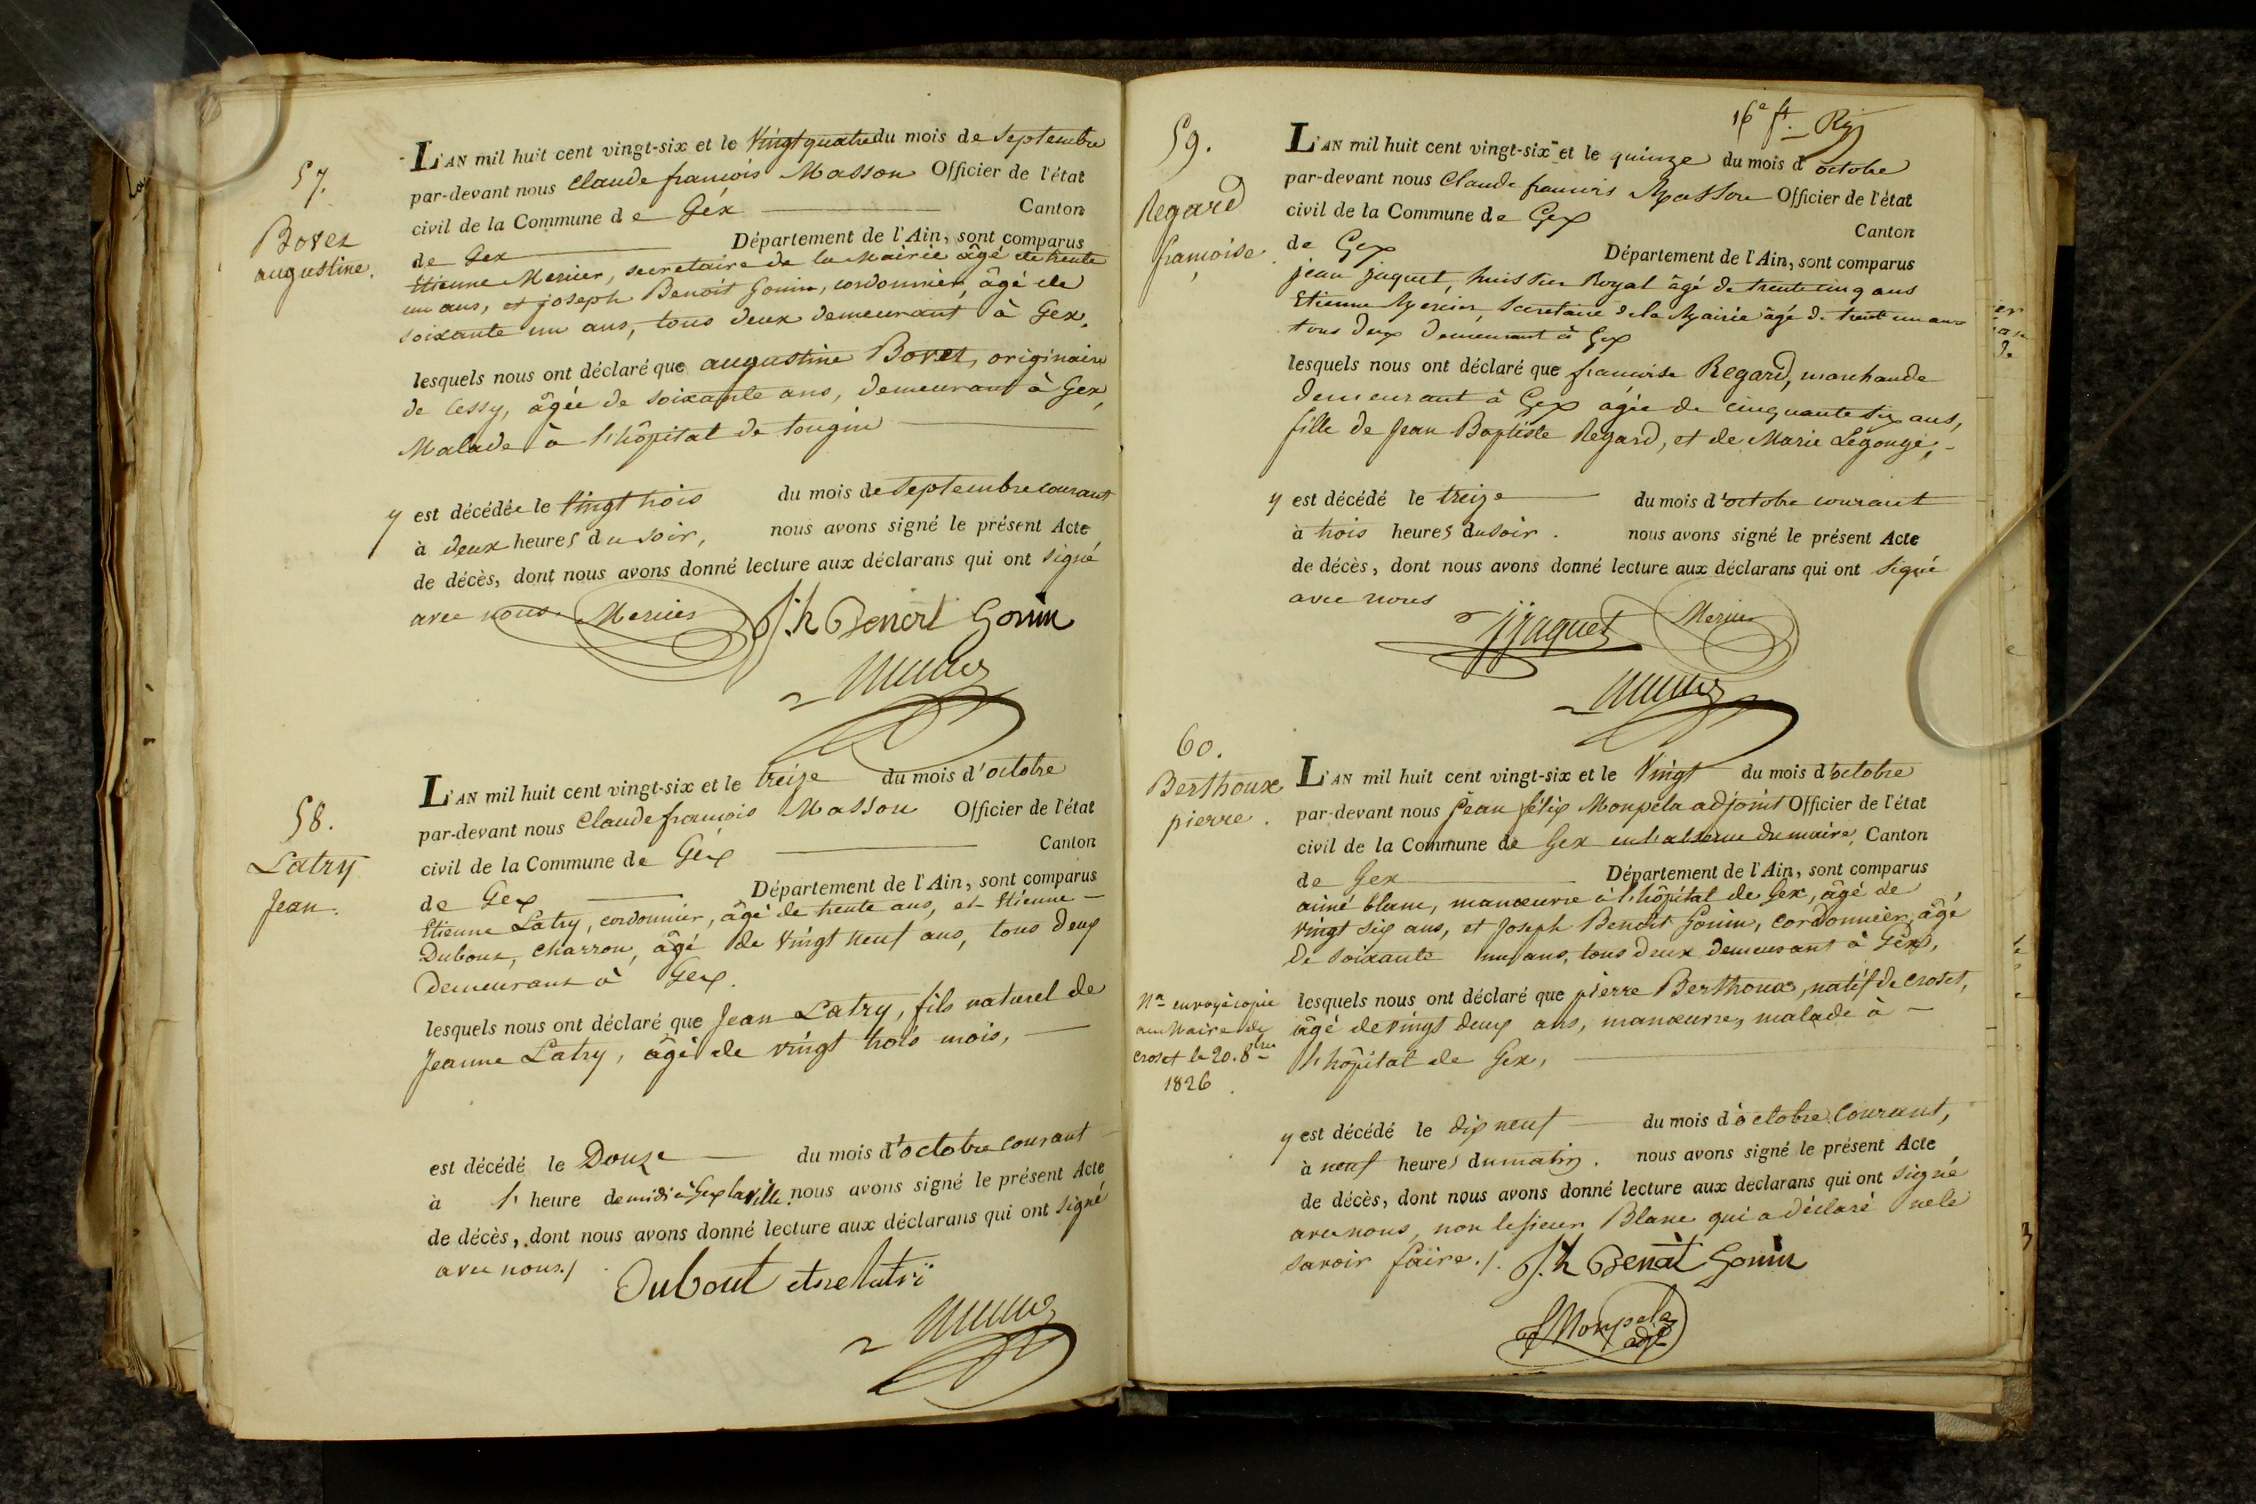 57.
Bovet
augustine.
L'AN mil huit cent vingt-six et le Vingt quatre du mois de Septembre
par-devant nous Claude francois Masson Officier de l'état
civil de la Commune de Gex Canton
de Gex Département de l'Ain, sont comparus
Etienne Mercier, secretaire de la Mairie âgé de trente
un ans, et joseph Benoit Gonin, cordonnier, âgé de
soixante un ans, tous deux demeurant à Gex,
lesquels nous ont déclaré que augustine Bovet, originaire
de Cessy, âgée de soixante ans, demeurant à Gex,
Malade à l'hôpital de tougin
y est décédée le Vingt trois du mois de Septembre courant
à deux heures du soir, nous avons signé le présent Acte
de décès, dont nous avons donné lecture aux déclarans qui ont signé
avec nous. Mercier J.h Benoit Gonin
58.
Latry
Jean.
L'AN mil huit cent vingt-six et le treize du mois d'octobre
par-devant nous Claude francois Masson Officier de l'état
civil de la Commune de Gex Canton
de Gex Département de l'Ain, sont comparus
Etienne Latry, cordonnier, âgé de trente ans, et Etienne
Dubout, charron, âgé de Vingt neuf ans, tous deux
demeurant à Gex.
lesquels nous ont déclaré que Jean Latry, fils naturel de
Jeanne Latry, âgé de vingt trois mois,
est décédé le Douze du mois d'octobre courant
à l' heure de midi à Gex la ville. nous avons signé le présent Acte
de décès, dont nous avons donné lecture aux déclarans qui ont signé
avec nous./.
Dubout etne latri
16e ft. Rg
59.
Regard
françoise.
L'AN mil huit cent vingt-six et le quinze du mois d'octobre
par-devant nous Claude francois Masson Officier de l'état
civil de la Commune de Gex Canton
de Gex Département de l'Ain, sont comparus
jean jaquet, huissier Royal âgé de trente cinq ans
Etienne Mercier, Secretaire de la Mairie âgé de trente un ans
tous deux demeurant à Gex
lesquels nous ont déclaré que francoise Regard, marchande
demeurant à Gex âgée de cinquante six ans,
fille de Jean Baptiste Regard, et de Marie Legonge,
y est décédé le treize du mois d'octobre courant
à trois heures du soir. nous avons signé le présent Acte
de décès, dont nous avons donné lecture aux déclarans qui ont signé
avec nous
jjaquet Mercier
60.
Berthoux
pierre.
L'AN mil huit cent vingt-six et le Vingt du mois d'octobre
par-devant nous Jean félix Monpela adjoint Officier de l'état
civil de la Commune de Gex en l'absence du maire, Canton
de Gex Département de l'Ain, sont comparus
aimé blanc, manœuvre à l'hôpital de Gex, âgé de
vingt six ans, et Joseph Benoit Gonin, cordonnier, âgé
de soixante un ans, tous deux demeurant à Gex,
lesquels nous ont déclaré que pierre Berthoux, natif de croset,
âgé de vingt deux ans, manœuvre, malade à
l'hôpital de Gex,
Na envoyé copie
au Maire de
croset le 20. 8bre
1826.
y est décédé le dix neuf du mois d'octobre courant,
à neuf heures du matin. nous avons signé le présent Acte
de décès, dont nous avons donné lecture aux declarans qui ont signé
avec nous, non le sieur Blanc qui a déclaré ne le
savoir faire./. J.h Benoit Gonin
Monpela
adjt